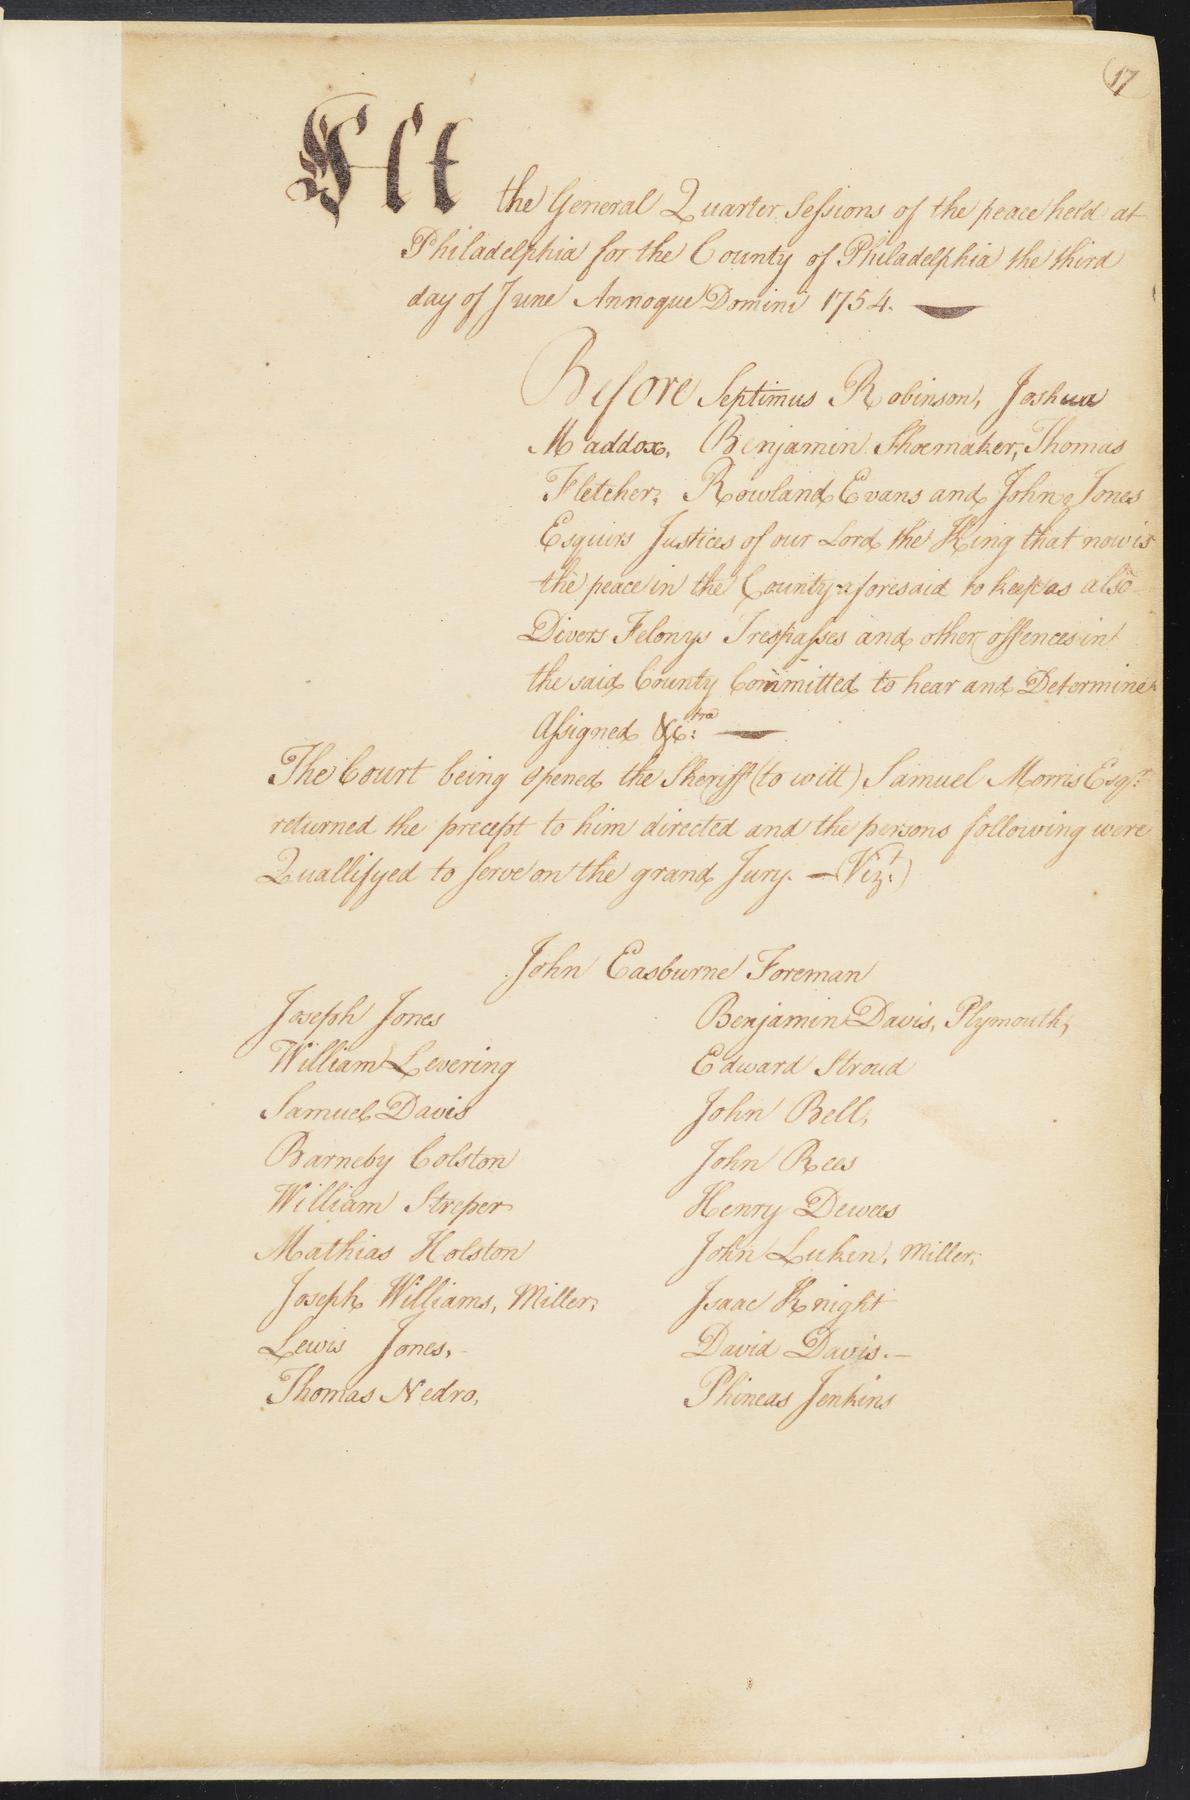 17
At the General Quarter Sessions of the peace held at
Philadelphia for the County of Philadelphia the third
day of June Annoque Domini 1754.
Before Septimus Robinson, Joshua
Maddox, Benjamin Shoemaker, Thomas
Fletcher, Rowland Evans and John Jones
Esquirs Justices of our Lord the King that now is
the peace in the County aforesaid to keep as also
Divers Felonys Trespasses and other offences in
the said County Committed to hear and Determine
Assigned &c:tra —
The Court being opened the Sheriff (to witt) Samuel Morris Esqr.
returned the precept to him directed and the persons following were
Quallifyed to serve on the grand Jury. — (Vizt.)
John Easburne Foreman
Joseph Jones
William Levering
Samuel Davis
Barneby Colston
William Streper
Mathias Holston
Joseph Williams, Miller,
Lewis Jones, -
Thomas Nedro,
Benjamin Davis, Plymouth,
Edward Stroud
John Bell,
John Rees
Henry Dewees
John Luken, Miller,
Isaac Knight
David Davis. —
Phineas Jenkins